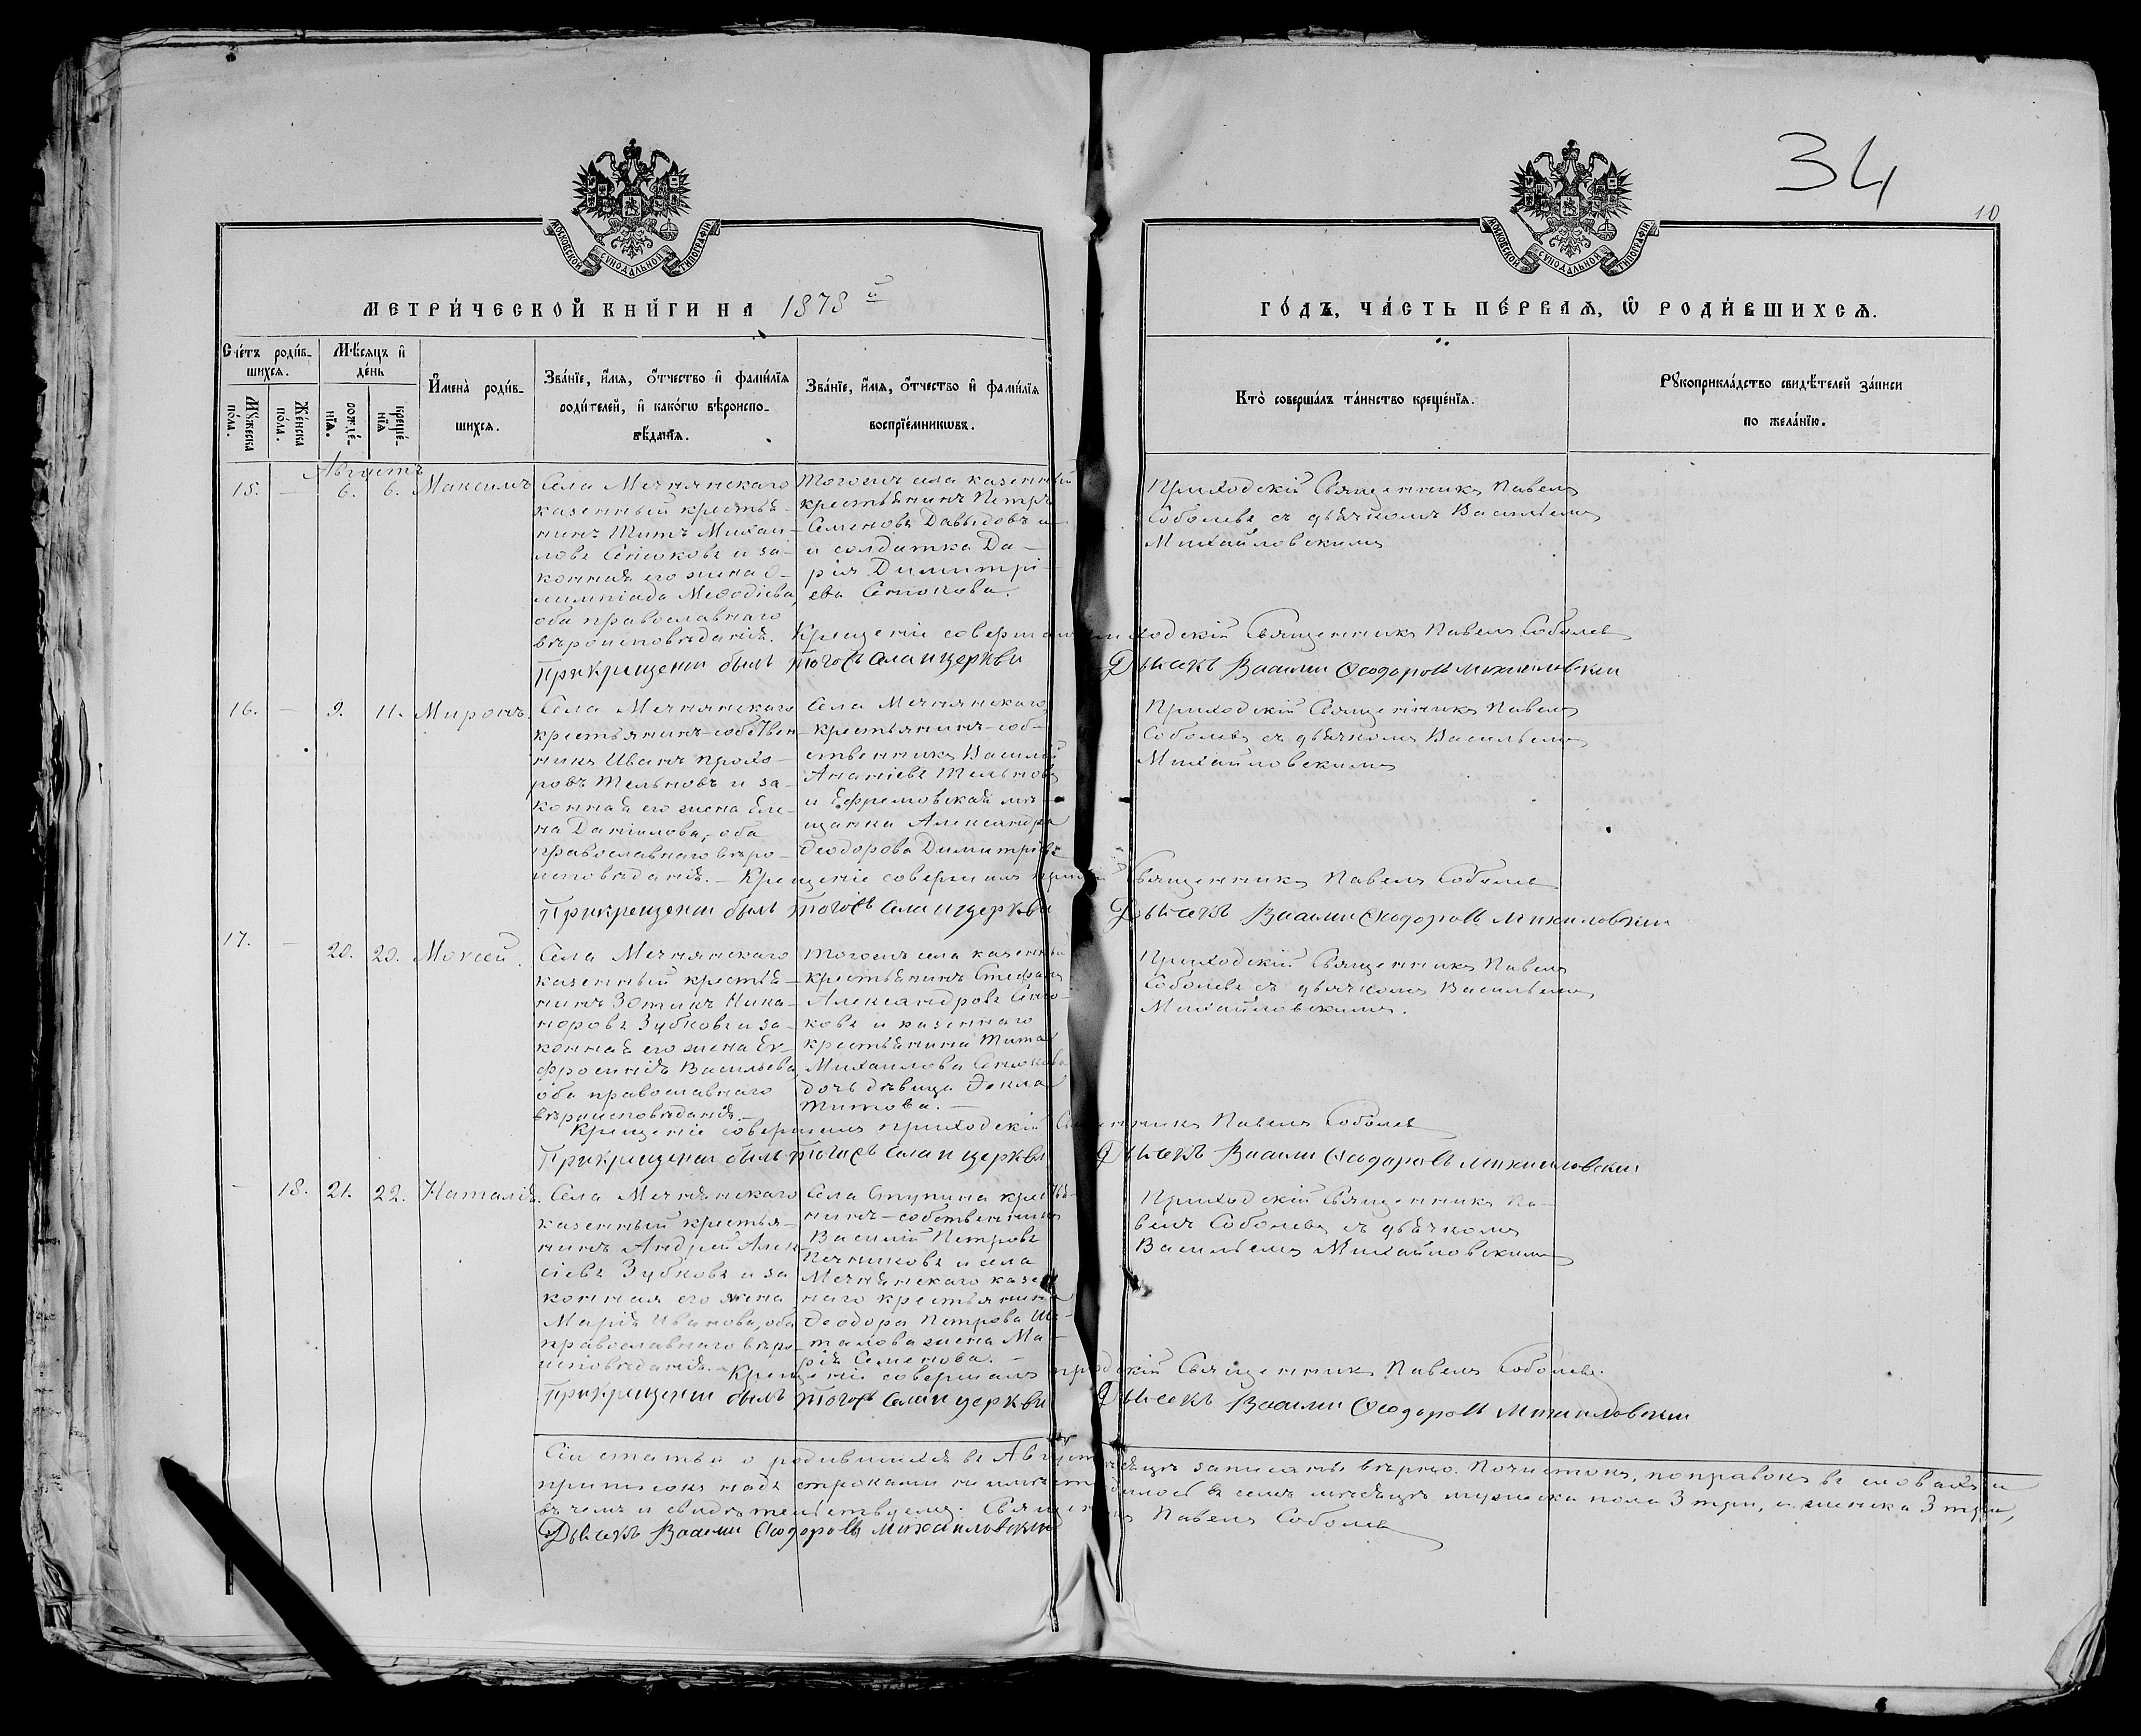 34
10
МОСКОВСКОЙ СѴНОДАЛЬНОЙ ТИПОГРАФІИ
МОСКОВСКОЙ СѴНОДАЛЬНОЙ ТИПОГРАФІИ
МЕТРИ́ЧЕСКОЙ КНИ́ГИ НА 1878й
ГО́ДЪ, ЧА́СТЬ ПЕ́РВАѦ, Ѿ РОДИ́ВШИХСѦ.
Сче́тъ роди́в-
шихсѧ.
Мꙋ́жеска по́ла.
Же́нска по́ла.
Мѣ́сѧцъ и҆ де́нь
рожде́-нїѧ.
креще́-нїѧ
И҆мена̀ роди́в-
шихсѧ.
Зва́нїе, и҆́мѧ, ѻ҆́тчество и҆ фами́лїѧ
роди́телей, и҆ како́гѡ вѣроиспо-
вѣ́данїѧ.
Зва́нїе, и҆́мѧ, ѻ҆́тчество и҆ фами́лїѧ
воспрїе́мникѡвъ.
Кто̀ соверша́лъ та́инство креще́нїѧ.
Рꙋкоприкла́дство свидѣ́телей за́писи
по жела́нїю.
Августъ
15. — 6. 6. Максимъ
Села Мечнянскаго
казенный крестья-
нинъ Титъ Михаи-
ловъ Сенюковъ и за-
конная его жена О-
лимпіада Меѳодіева,
оба православнаго
вѣроисповѣданія.
Тогожъ села казенный
крестьянинъ Петръ
Семеновъ Давыдовъ и
и солдатка Да-
рія Димитрі-
ева Сенюкова.
Приходскій Священникъ Павелъ
Соболевъ съ дьячкомъ Васильемъ
Михайловскимъ
Крещеніе совершалъ приходскій Священникъ Павелъ Соболевъ
При крещеніи былъ тогожъ села и церкви Дьячекъ Василій Ѳеодоровъ Михайловскій
16. — 9. 11. Миронъ.
Села Мечнянскаго
крестьянинъ-собствен-
никъ Иванъ Прохо-
ровъ Тельновъ и за-
конная его жена Еле-
на Даніилова, оба
православнаго вѣро-
исповѣданія.
Села Мечнянскаго
крестьянинъ-соб-
ственникъ Василій
Ананіевъ Тельновъ
и Ефремовская мѣ-
щанка Александра
Ѳеодорова Димитріева
Приходскій Священникъ Павелъ
Соболевъ съ дьячкомъ Васильемъ
Михайловскимъ
Крещеніе совершалъ прих. Священникъ Павелъ Соболевъ
При крещеніи былъ тогожъ села и церкви Дьячекъ Василій Ѳеодоровъ Михайловскій
17. — 20. 20. Моисей.
Села Мечнянскаго
казенный крестья-
нинъ Зотикъ Ника-
норовъ Зубковъ и за-
конная его жена Ев-
фросинія Васильева,
оба православнаго
вѣроисповѣданія.
Тогожъ села казенный
крестьянинъ Стефанъ
Александровъ Сеню-
ковъ и казеннаго
крестьянина Тита
Михаилова Сенюкова
дочь дѣвица Ѳекла
Титова. —
Приходскій Священникъ Павелъ
Соболевъ съ дьячкомъ Васильемъ
Михайловскимъ.
Крещеніе совершалъ приходскій Священникъ Павелъ Соболевъ
При крещеніи былъ тогожъ села и церкви Дьячекъ Василій Ѳеодоровъ Михайловскій
— 18. 21. 22. Наталія.
Села Мечнянскаго
казенный крестья-
нинъ Андрей Алек-
сіевъ Зубковъ и за
конная его жена
Марія Иванова, оба
православнаго вѣро-
исповѣданія.
Села Ступина крестья-
нинъ-собственникъ
Василій Петровъ
Печниковъ и села
Мечнянскаго казен
наго крестьянина
Ѳеодора Петрова Ша-
талова жена Ма-
рія Семенова. —
Приходскій Священникъ Па-
велъ Соболевъ съ дьячкомъ
Васильемъ Михайловскимъ
Крещеніе совершалъ приходскій Священникъ Павелъ Соболевъ.
При крещеніи былъ тогожъ села и церкви Дьячекъ Василій Ѳеодоровъ Михайловскій
Сіи статьи о родившихся въ Августѣ мѣсяцѣ записаны вѣрно. Почистокъ, поправокъ въ словахъ и
приписокъ надъ строками не имѣетъ родилось въ семъ мѣсяцѣ мужска пола 3 три, и женска 3 три,
въ чемъ и свидѣтельствуемъ: Священникъ Павелъ Соболевъ
Дьячекъ Василій Ѳеодоровъ Михайловскій